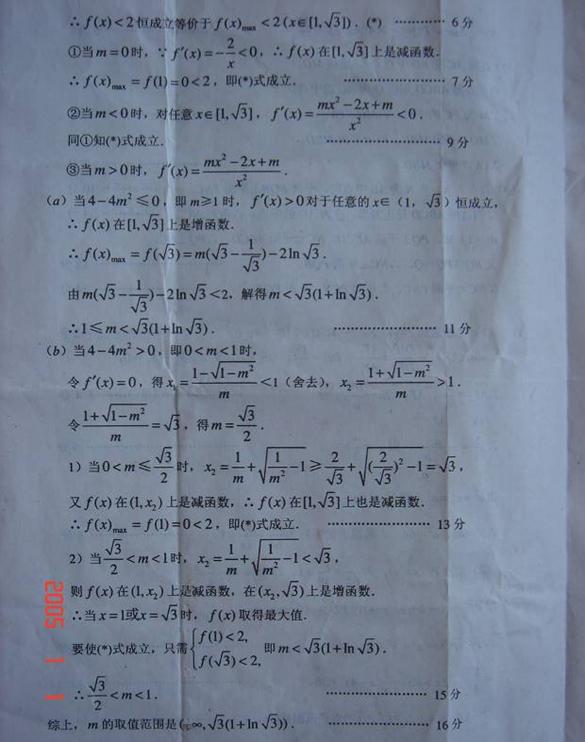 ∴ f(x)<2 恒成立等价于 f(x)max <2 (x∈[1,√3]). (*) ………… 6分
①当 m=0 时, ∵ f′(x)=-2/x<0, ∴ f(x) 在 [1,√3] 上是减函数.
∴ f(x)max = f(1)=0<2, 即(*)式成立. ………………… 7分
②当 m<0 时, 对任意 x∈[1,√3], f′(x)=(mx²-2x+m)/x²<0.
同①知(*)式成立. ………………… 9分
③当 m>0 时, f′(x)=(mx²-2x+m)/x².
(a) 当 4-4m²≤0, 即 m≥1 时, f′(x)>0 对于任意的 x∈(1, √3) 恒成立,
∴ f(x) 在 [1,√3] 上是增函数.
∴ f(x)max = f(√3)=m(√3-1/√3)-2ln√3.
由 m(√3-1/√3)-2ln√3<2, 解得 m<√3(1+ln√3).
∴1≤m<√3(1+ln√3). ………………… 11分
(b) 当 4-4m²>0, 即 0<m<1 时,
令 f′(x)=0, 得 x₁=(1-√(1-m²))/m<1 (舍去), x₂=(1+√(1-m²))/m>1.
令 (1+√(1-m²))/m=√3, 得 m=√3/2.
1) 当 0<m≤√3/2 时, x₂=1/m+√(1/m²-1)≥2/√3+√((2/√3)²-1)=√3,
又 f(x) 在 (1,x₂) 上是减函数, ∴ f(x) 在 [1,√3] 上也是减函数.
∴ f(x)max = f(1)=0<2, 即(*)式成立. ………………… 13分
2) 当 √3/2<m<1 时, x₂=1/m+√(1/m²-1)<√3,
则 f(x) 在 (1,x₂) 上是减函数, 在 (x₂,√3) 上是增函数.
∴当 x=1 或 x=√3 时, f(x) 取得最大值.
要使(*)式成立, 只需 { f(1)<2, f(√3)<2, 即 m<√3(1+ln√3).
∴ √3/2<m<1. ………………… 15分
综上, m 的取值范围是 (-∞,√3(1+ln√3)). ………………… 16分
2005 1 1